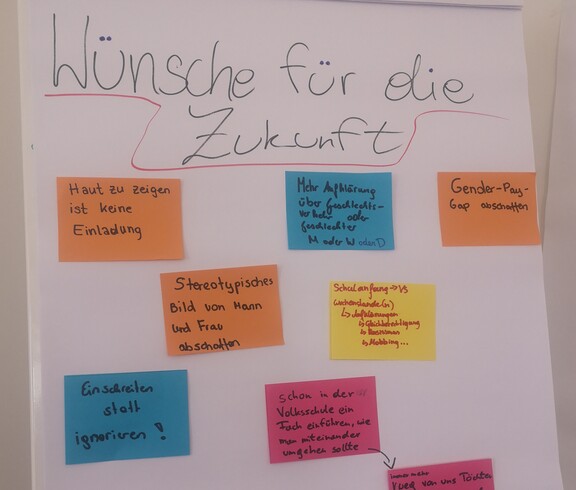 Wünsche für die
Zukunft
Haut zu zeigen
ist keine
Einladung
Mehr Aufklärung
über Geschlechts-
verkehr oder
Geschlechter
M oder W oder D
Gender-Pay-
Gap abschaffen
Stereotypisches
Bild von Mann
und Frau
abschaffen
Schulanfang → VS
↳ Aufklärungen
↳ Gleichberechtigung
↳ Rassismus
↳ Mobbing...
Einschreiten
statt
ignorieren!
Schon in der
Volksschule ein
Fach einführen, wie
man miteinander
umgehen sollte
von uns